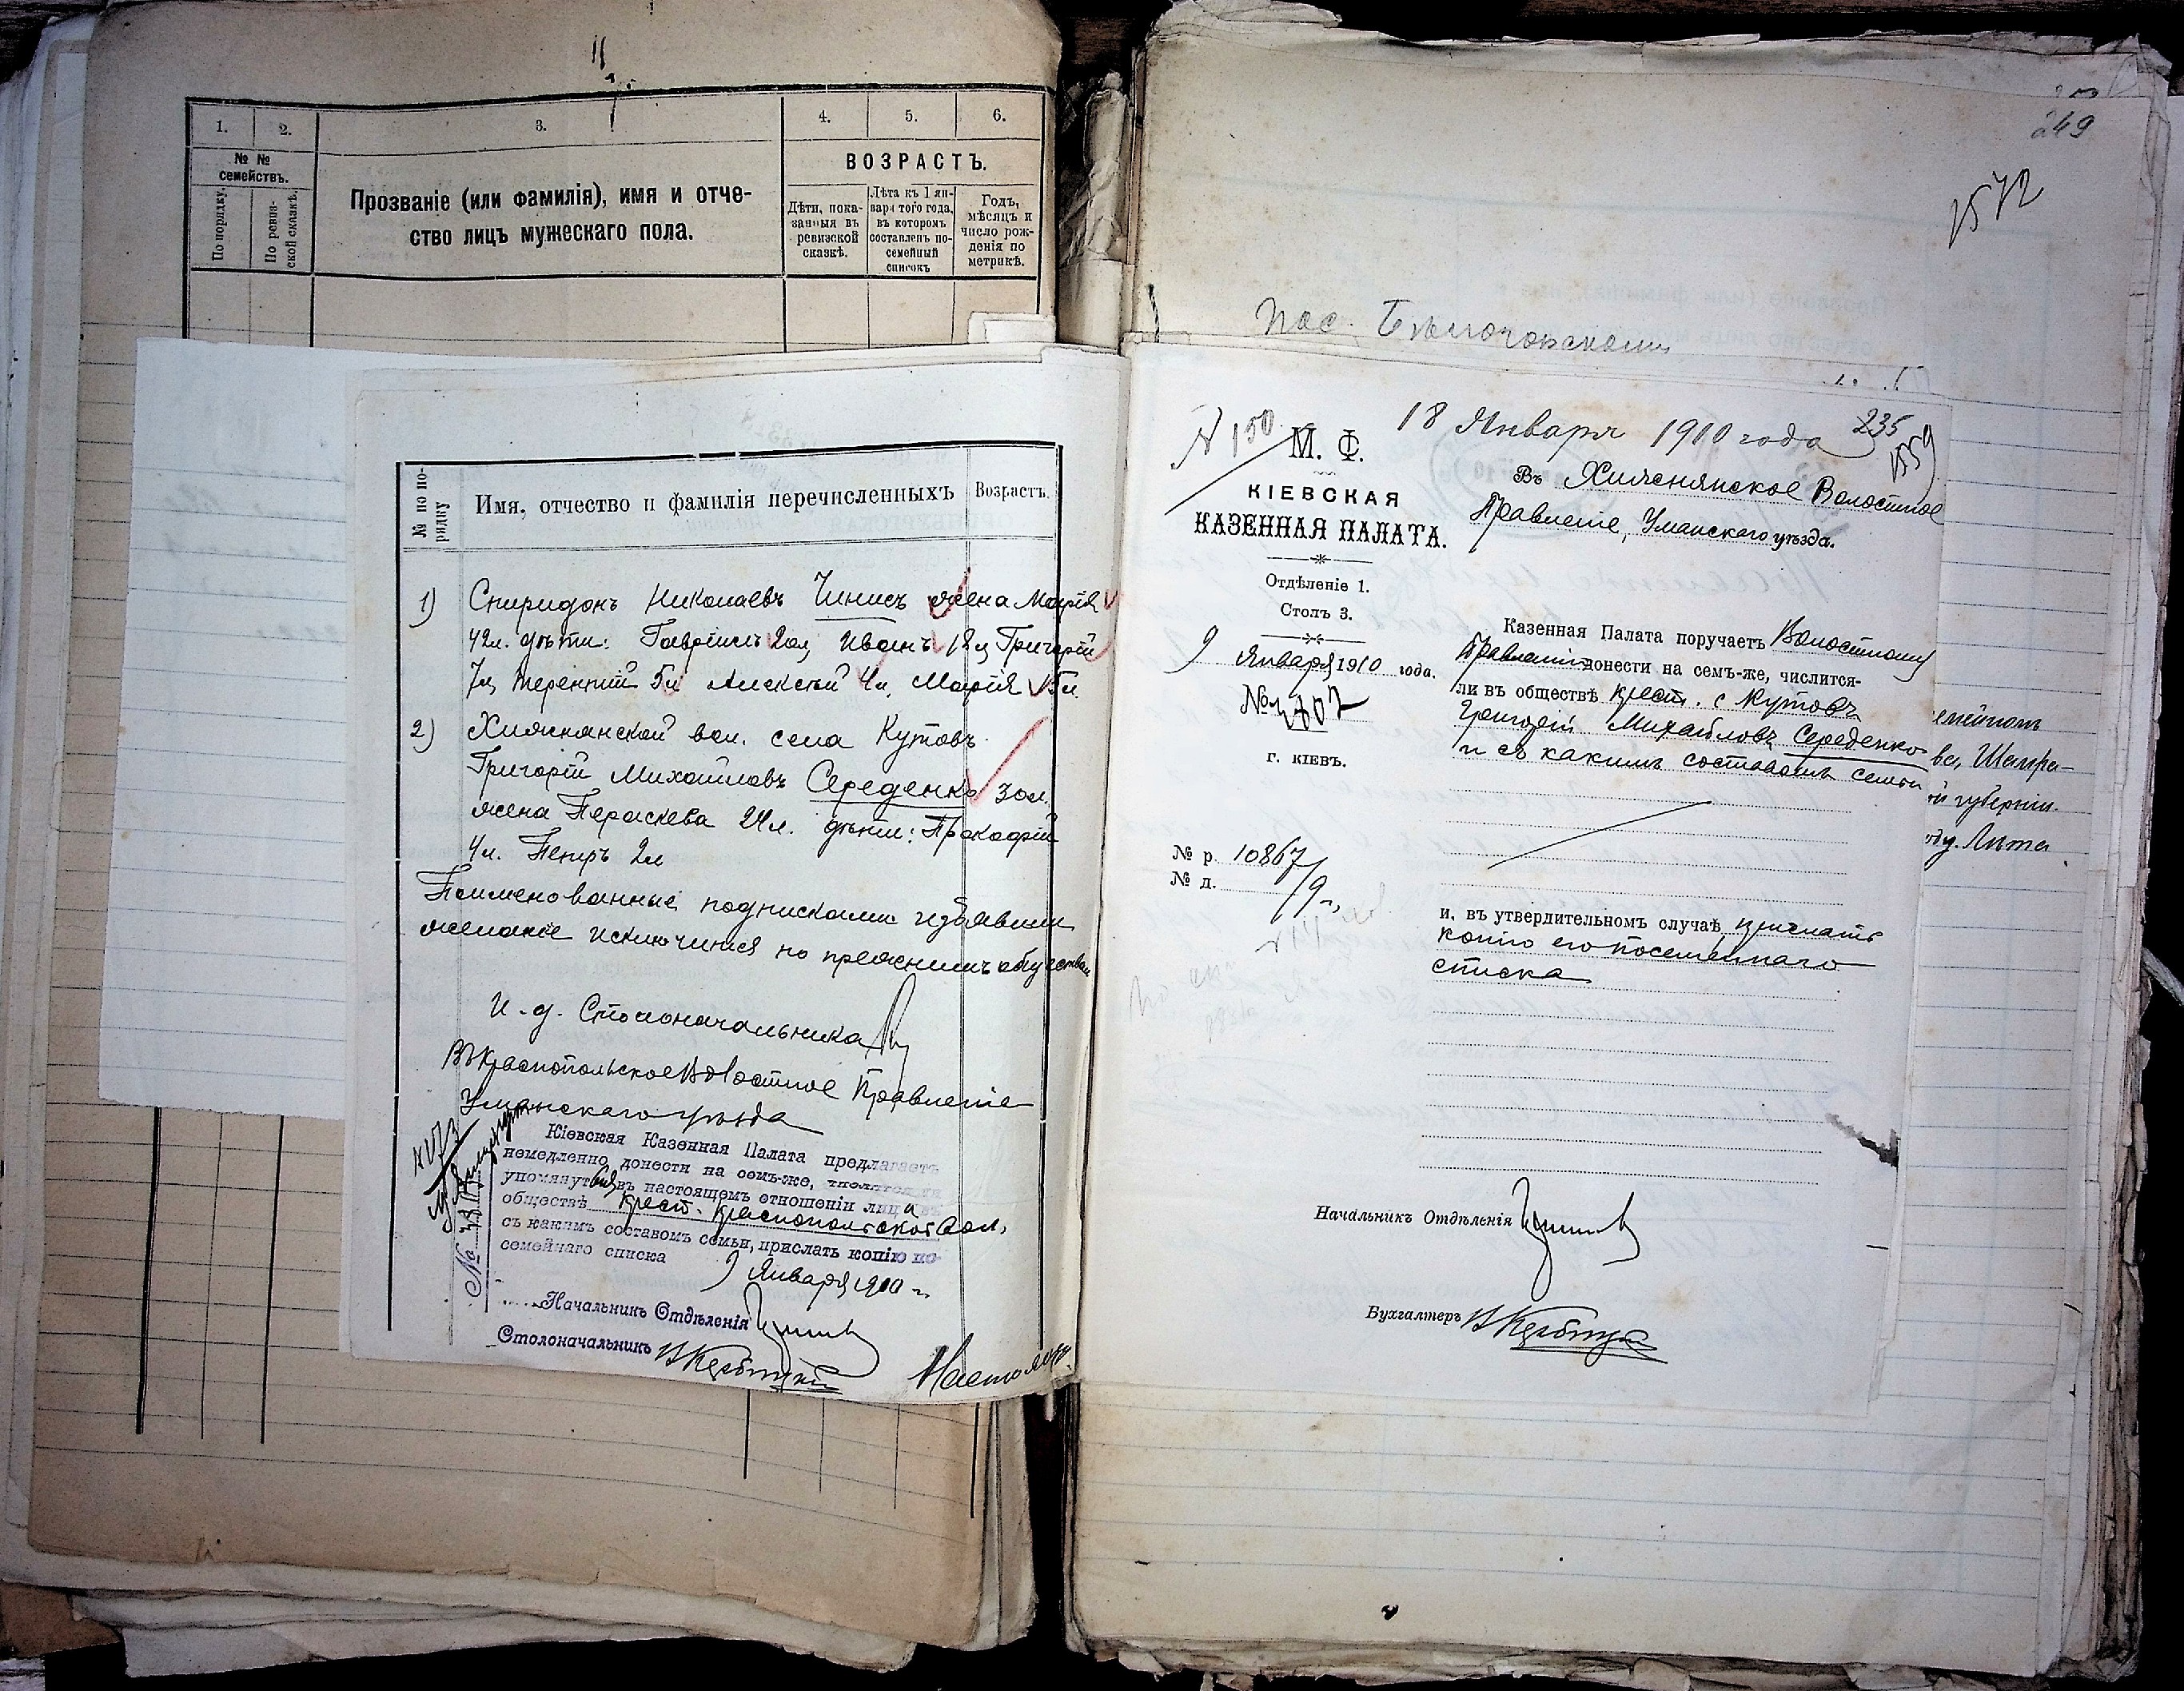 1.
2.
3.
4.
5.
6.
№ №
семействъ.
По порядку.
По ревиз-
ской сказкѣ.
Прозваніе (или фамилія), имя и отче-
ство лицъ мужескаго пола.
ВОЗРАСТЪ.
Дѣти, пока-
занныя въ
ревизской
сказкѣ.
Лѣта къ 1 ян-
варя того года,
въ которомъ
составленъ по-
семейный
списокъ
Годъ,
мѣсяцъ и
число рож-
денія по
метрикѣ.
№ по по-
рядку
Имя, отчество и фамилія перечисленныхъ
Возрастъ.
1) Спиридонъ Николаевъ Чинисъ жена Марія
42л. дѣти: Гавріилъ 20л, Иванъ 18л, Григорій
7л, Терентій 5л Алексѣй 4л, Марія 15л.
2) Хижнянской вол. села Кутовъ
Григорій Михайловъ Середенко 30л.
жена Параскева 24л. дѣти: Прокофій
4л. Петръ 2л
Поименованные подписками изъявили
желаніе исключится по прежнимъ обществам
И. д. Столоначальника
Въ Краснопольское Волостное Правленіе
Уманскаго уѣзда
Кіевская Казенная Палата предлагаетъ
немедленно донести на семъ-же, числятся ли
упомянутыя въ настоящемъ отношеніи лица въ
обществѣ крест. Краснопольской вол,
съ какимъ составомъ семьи, прислать копію по-
семейнаго списка
9 Января 1910 г.
Начальникъ Отдѣленія
Столоначальникъ
249
1572
Пос.
№ 150
18 Января 1910 года
235
1559
М. Ф.
КІЕВСКАЯ
КАЗЕННАЯ ПАЛАТА.
Отдѣленіе 1.
Столъ 3.
9 Января 1910 года.
№
г. КІЕВЪ.
№ р. 10867
№ д. /9 г.
Въ Хижнянское Волостное
Правленіе, Уманскаго уѣзда.
Казенная Палата поручаетъ Волостному
Правленію донести на семъ-же, числится-
ли въ обществѣ крест. с Кутовъ
Григорій Михайловъ Середенко
и съ какимъ составомъ семьи
и, въ утвердительномъ случаѣ, прислать
копію его посемейнаго
списка
Начальникъ Отдѣленія
Бухгалтеръ
губерніи.